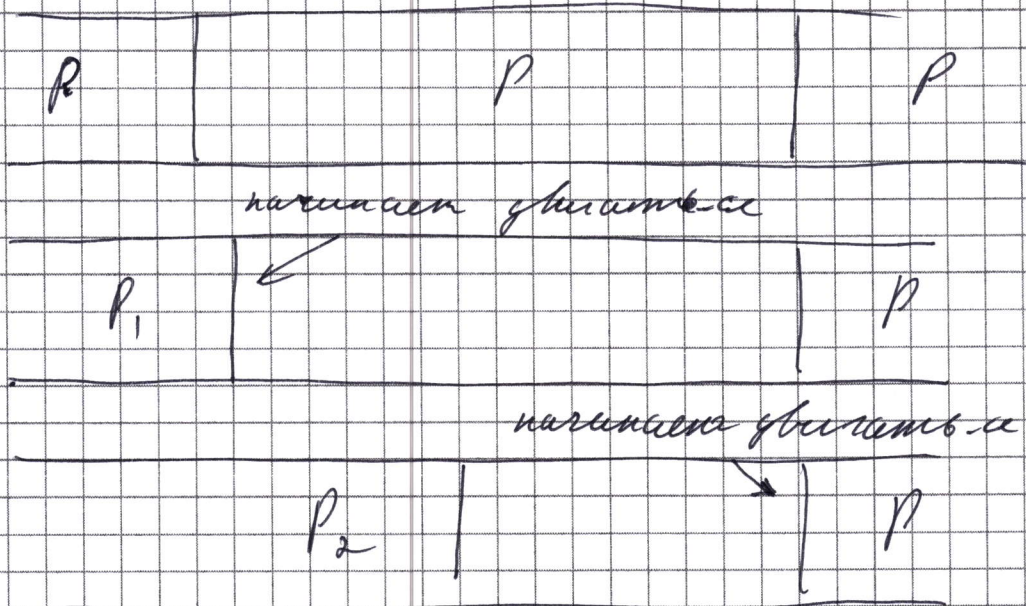 P P P
начинает двигаться
P₁ P
начинает двигаться
P₂ P